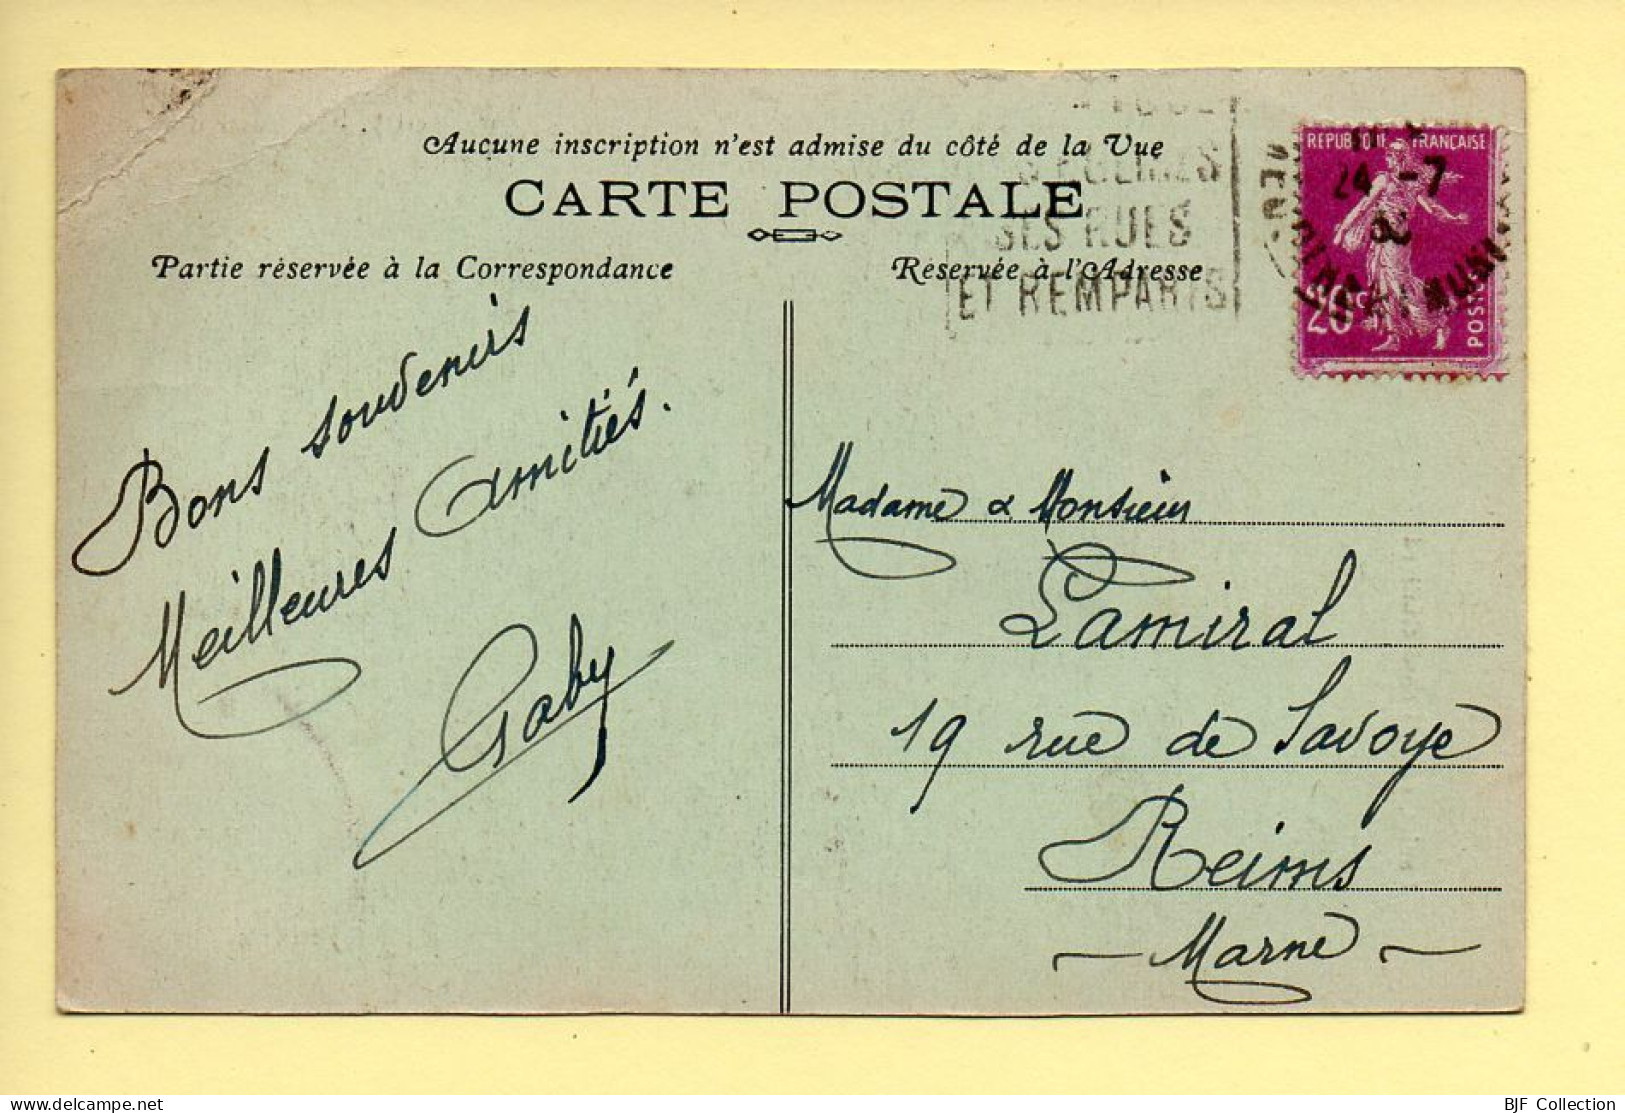 Aucune inscription n'est admise du côté de la Vue
CARTE POSTALE
Partie réservée à la Correspondance
Réservée à l'Adresse
SES RUES
ET REMPARTS
REPUBLIQUE FRANÇAISE
24 -7
20c
POSTES
Bons souvenirs
Meilleures amitiés.
Gaby
Madame & Monsieur
Lamiral
19 rue de Savoye
Reims
- Marne -
https://www.delcampe.net
BJF Collection